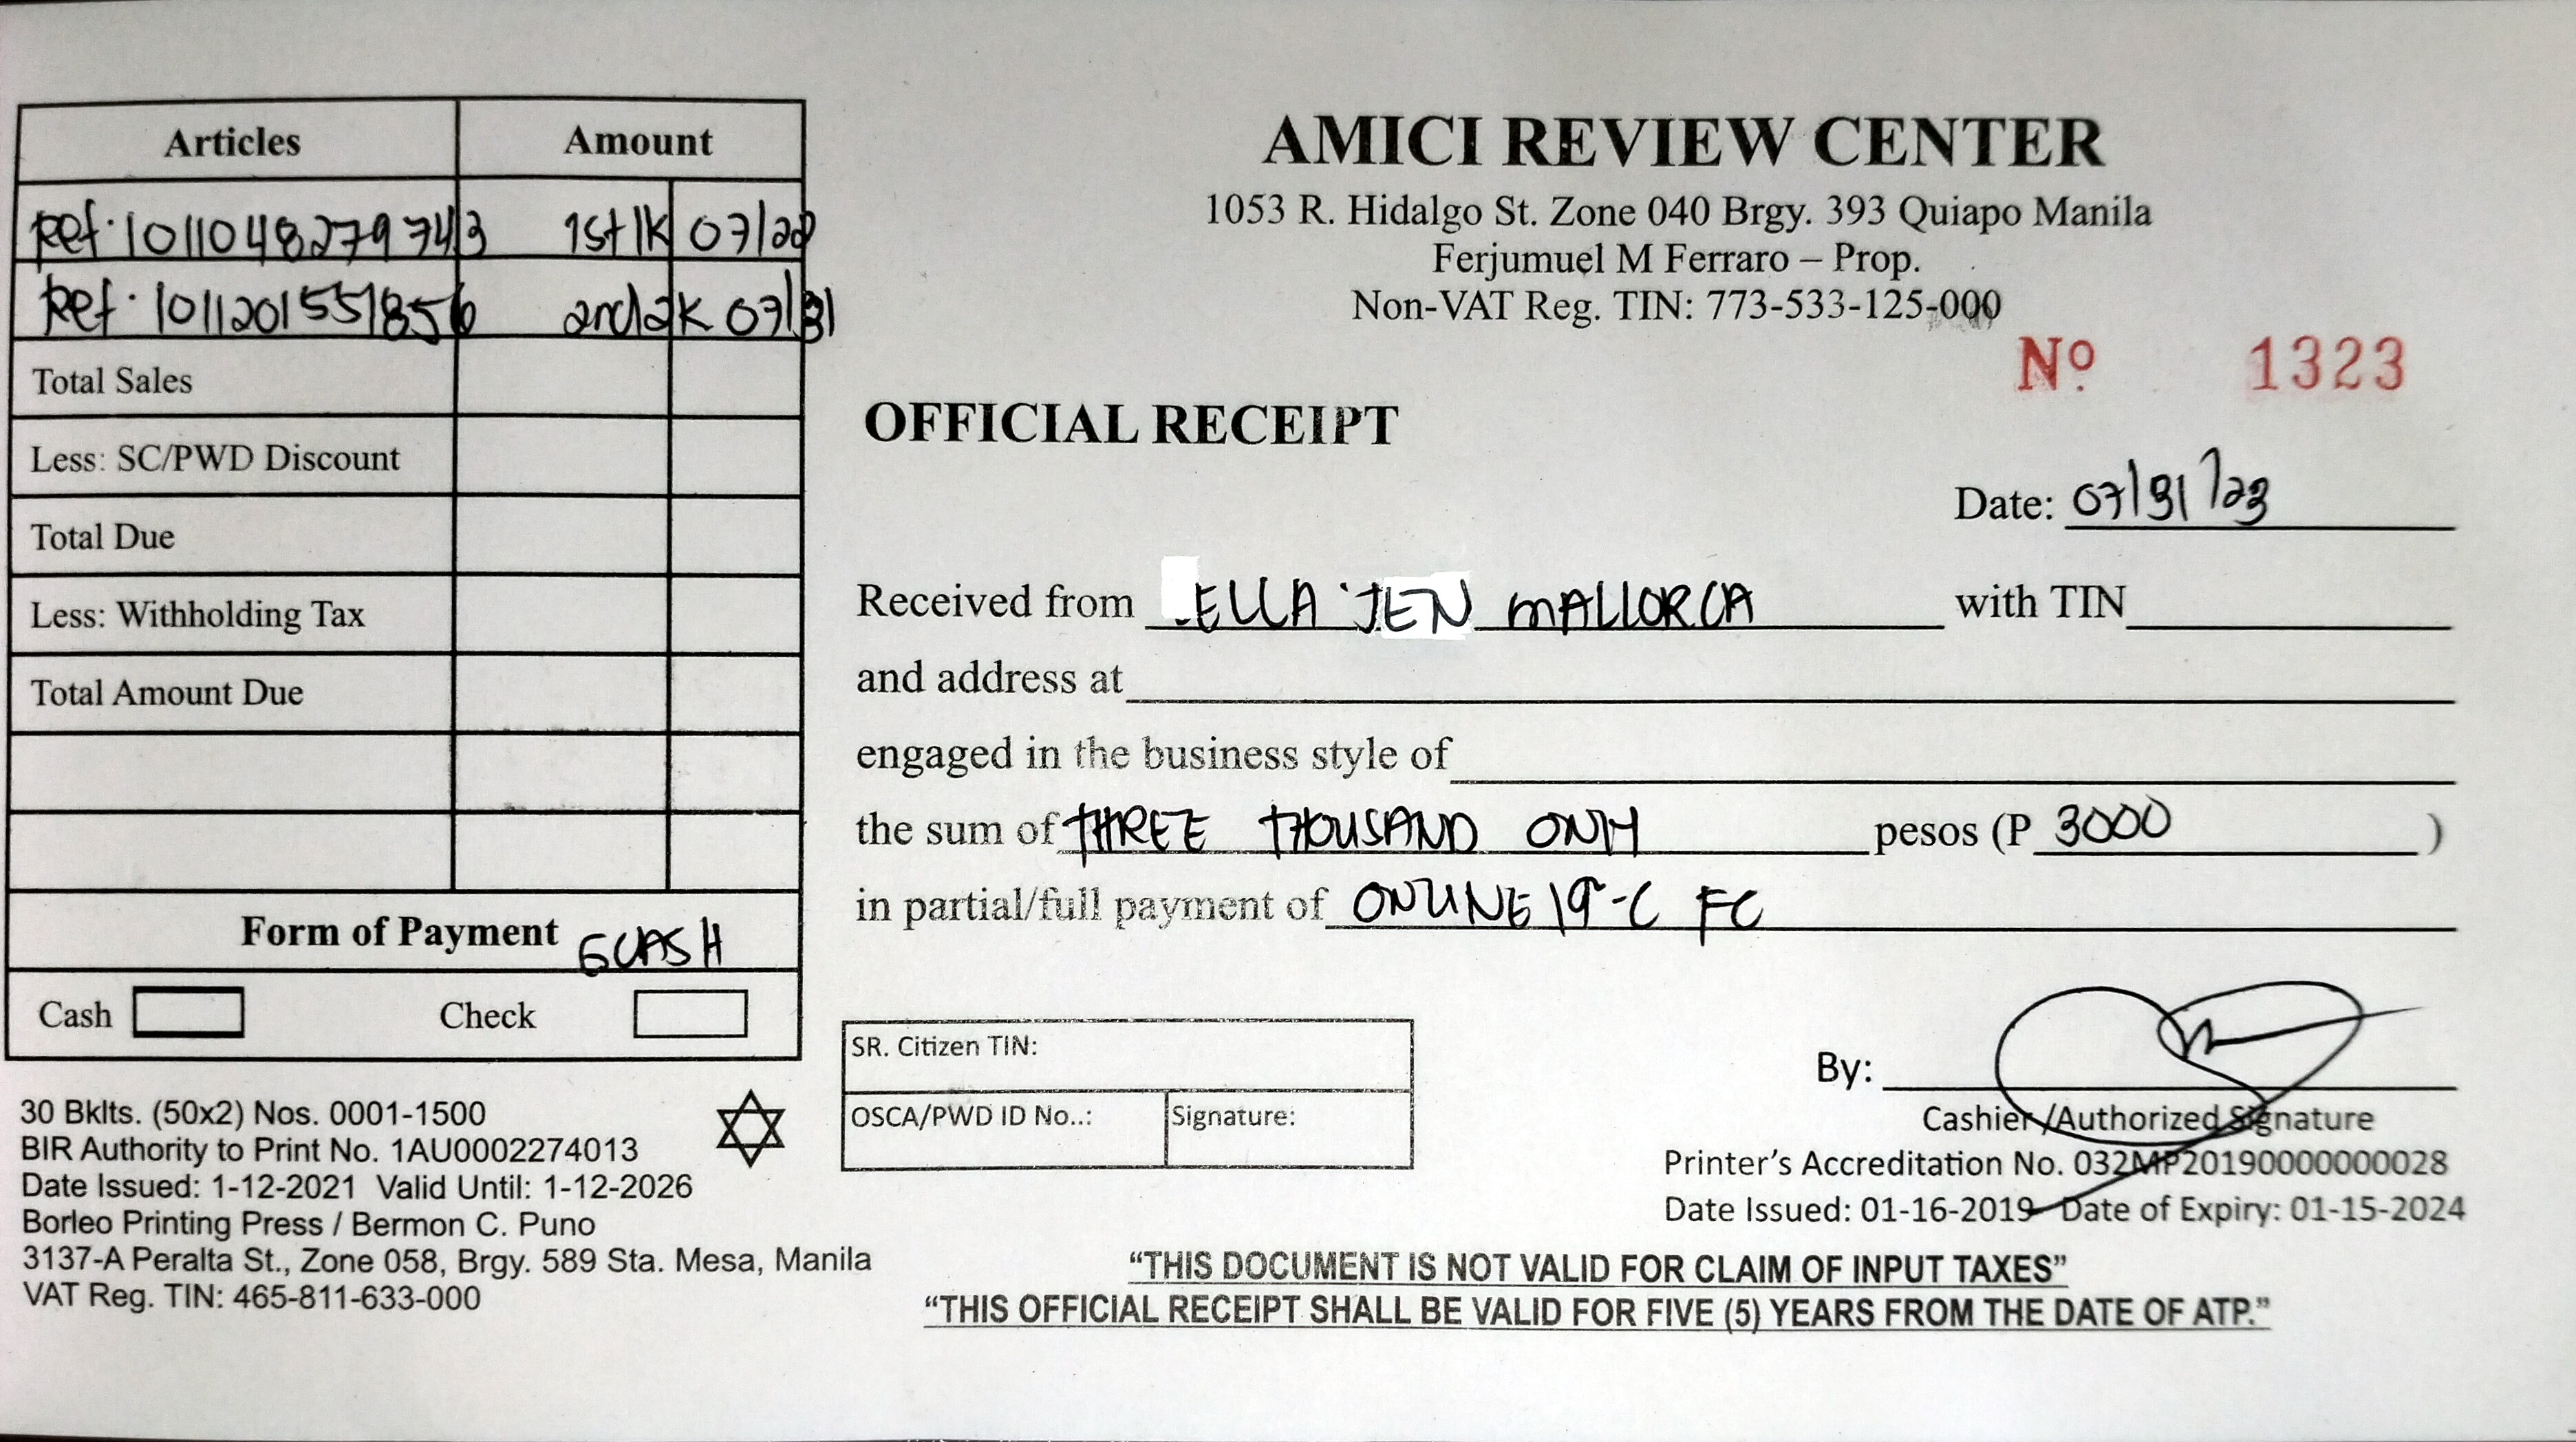 Articles Amount
Ref. 1011048279743 1st 1k 07/28
Ref. 1011201551856 2nd 2k 07/31
Total Sales
Less: SC/PWD Discount
Total Due
Less: Withholding Tax
Total Amount Due
Form of Payment GCASH
Cash Check
30 Bklts. (50x2) Nos. 0001-1500
BIR Authority to Print No. 1AU0002274013
Date Issued: 1-12-2021 Valid Until: 1-12-2026
Borleo Printing Press / Bermon C. Puno
3137-A Peralta St., Zone 058, Brgy. 589 Sta. Mesa, Manila
VAT Reg. TIN: 465-811-633-000
AMICI REVIEW CENTER
1053 R. Hidalgo St. Zone 040 Brgy. 393 Quiapo Manila
Ferjumuel M Ferraro – Prop.
Non-VAT Reg. TIN: 773-533-125-000
Nº 1323
OFFICIAL RECEIPT
Date: 07/31/23
Received from ELLA JEN MALLORCA with TIN
and address at
engaged in the business style of
the sum of THREE THOUSAND ONLY pesos (P 3000 )
in partial/full payment of ONLINE 19-C FC
SR. Citizen TIN:
OSCA/PWD ID No..: Signature:
By:
Cashier /Authorized Signature
Printer’s Accreditation No. 032MP20190000000028
Date Issued: 01-16-2019 Date of Expiry: 01-15-2024
“THIS DOCUMENT IS NOT VALID FOR CLAIM OF INPUT TAXES”
“THIS OFFICIAL RECEIPT SHALL BE VALID FOR FIVE (5) YEARS FROM THE DATE OF ATP.”